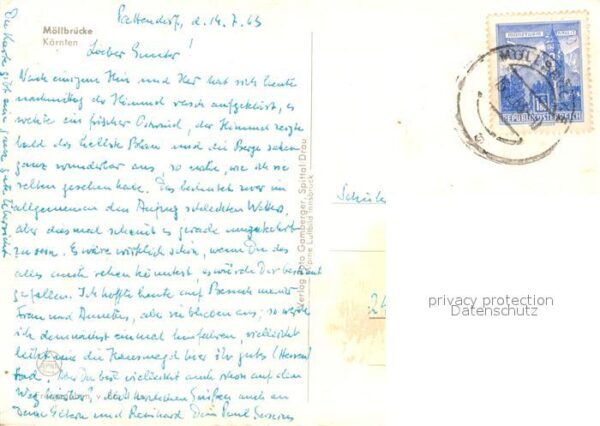 Möllbrücke
Kärnten
Pattendorf, d. 14.7.63
Lieber Gunter!
Nach einigem Hin und Her hat sich heute
nachmittag der Himmel rasch aufgeklärt, es
wehte ein frischer Ostwind, der Himmel zeigte
bald das hellste Blau und die Berge sahen
ganz wunderbar aus, so nahe, wie ich sie
selten gesehen habe. Das bedeutet zwar im
allgemeinen den Anfang schlechten Wetters,
aber diesmal scheint es gerade umgekehrt
zu sein. Es wäre wirklich schön, wenn Du das
alles auch sehen könntest, es würde Dir bestimmt
gefallen. Ich hoffte heute auf Besuch meiner
Frau und Annettes, aber sie blieben aus; so werde
ich demnächst einmal hinfahren, vielleicht
leiht mir die Hausmagd hier ihr gutes (Herren)
rad. Du bist vielleicht auch schon auf dem
Weg. Mit herzlichen Grüßen auch an
Deine Eltern und Reinhard Dein Paul
Die Karte gibt eine ganz gute Übersicht
Verlag Foto Gamberger, Spittal Drau
Alpine Luftbild Innsbruck
REPUBLIK ÖSTERREICH
MÖLLBRÜCKE
Schüler
24
privacy protection
Datenschutz